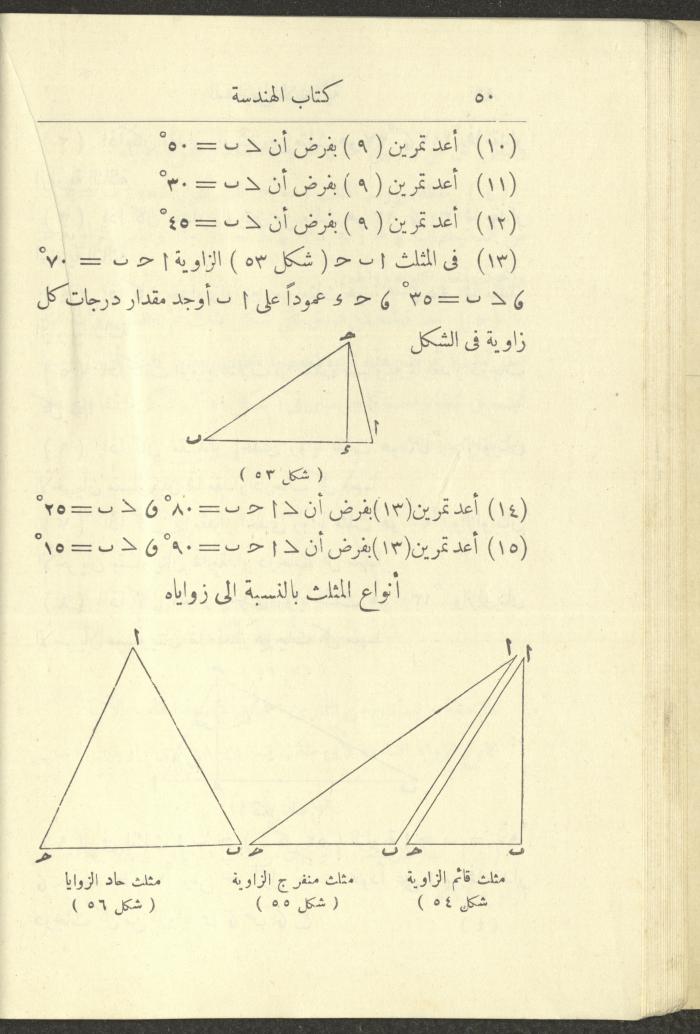 ٥٠ كتاب الهندسة
(١٠) أعد تمرين (٩) بفرض أن > ب = ٥٠°
(١١) أعد تمرين (٩) بفرض أن > ب = ٣٠°
(١٢) أعد تمرين (٩) بفرض أن > ب = ٤٥°
(١٣) فى المثلث ا ب حـ (شكل ٥٣) الزاوية ا حـ ب = ٧٠°
و > ب = ٣٥° و حـ ء عموداً على ا ب أوجد مقدار درجات كل
زاوية فى الشكل
حـ
ا
ب
ء
(شكل ٥٣)
(١٤) أعد تمرين (١٣) بفرض أن > ا حـ ب = ٨٠° و > ب = ٢٥°
(١٥) أعد تمرين (١٣) بفرض أن > ا حـ ب = ٩٠° و > ب = ١٥°
أنواع المثلث بالنسبة الى زواياه
ا ا ا
ب حـ ب حـ ب حـ
مثلث قائم الزاوية مثلث منفرج الزاوية مثلث حاد الزوايا
شكل ٥٤) (شكل ٥٥) (شكل ٥٦)